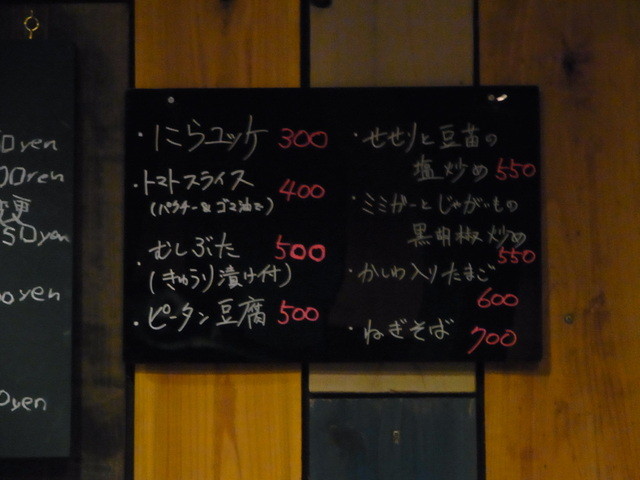 0yen
00yen
変更
50yen
00yen
0yen
・にらユッケ 300
・トマトスライス 400
(パクチー&ゴマ油で)
・むしぶた 500
(きゅうり漬け付)
・ピータン豆腐 500
・せせりと豆苗の
塩炒め 550
・ミミガーとじゃがいもの
黒胡椒炒め
550
・かしわ入りたまご
600
・ねぎそば 700